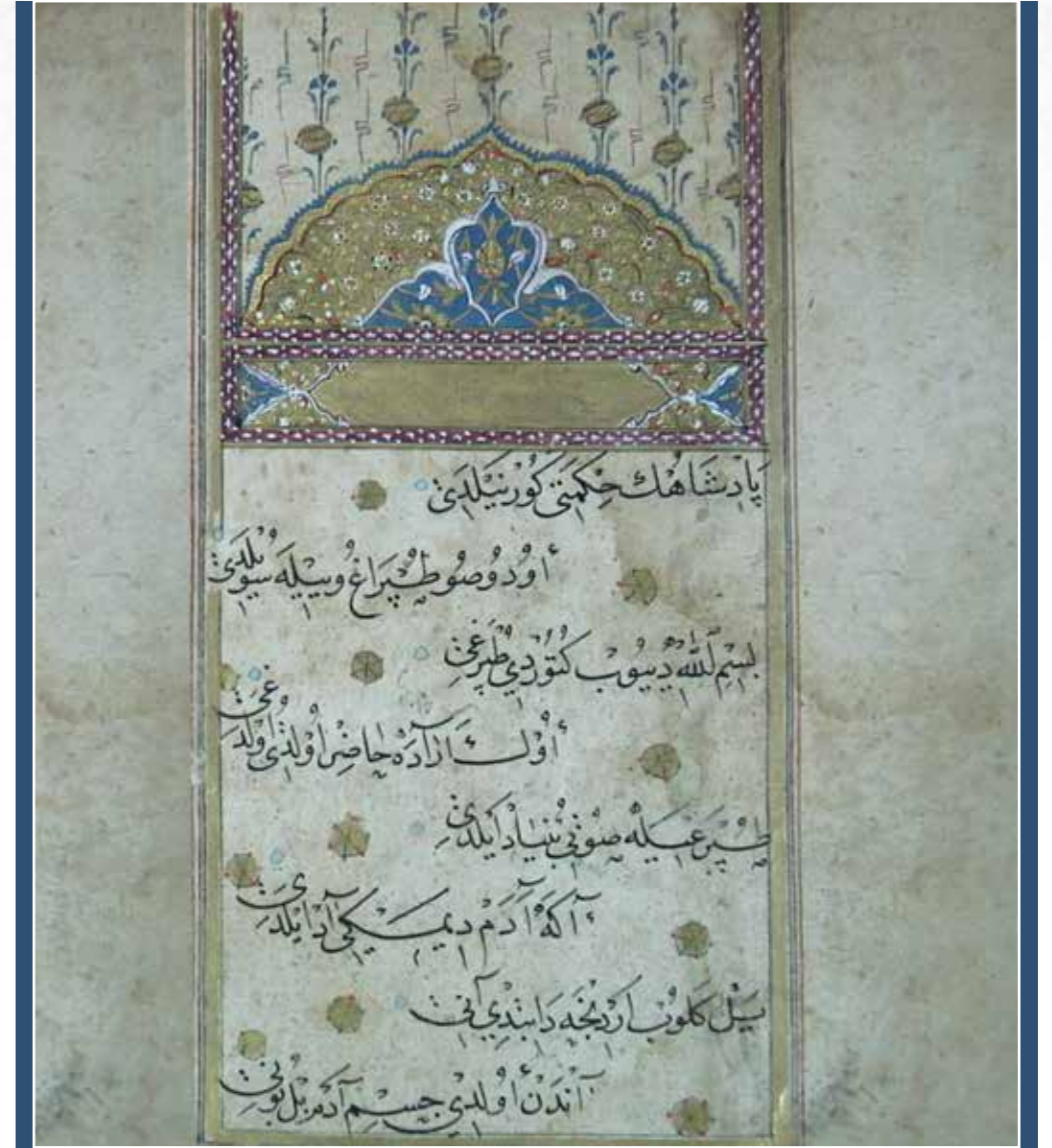 پادشاهك حكمتى كور نيلدى
اودو صو طپراغ و ييله سويلدى
بسم الله دييوب كتوردي طپرغى
اول ارآده حاضر اولدى اولدغى
طپرغيله صوئى بنياد ايلدى
اكه آدم ديمكى آد ايلدى
ييل كلوب اردنجه دابتدي آنى
آندن اولدي جسم آدم بل بونى